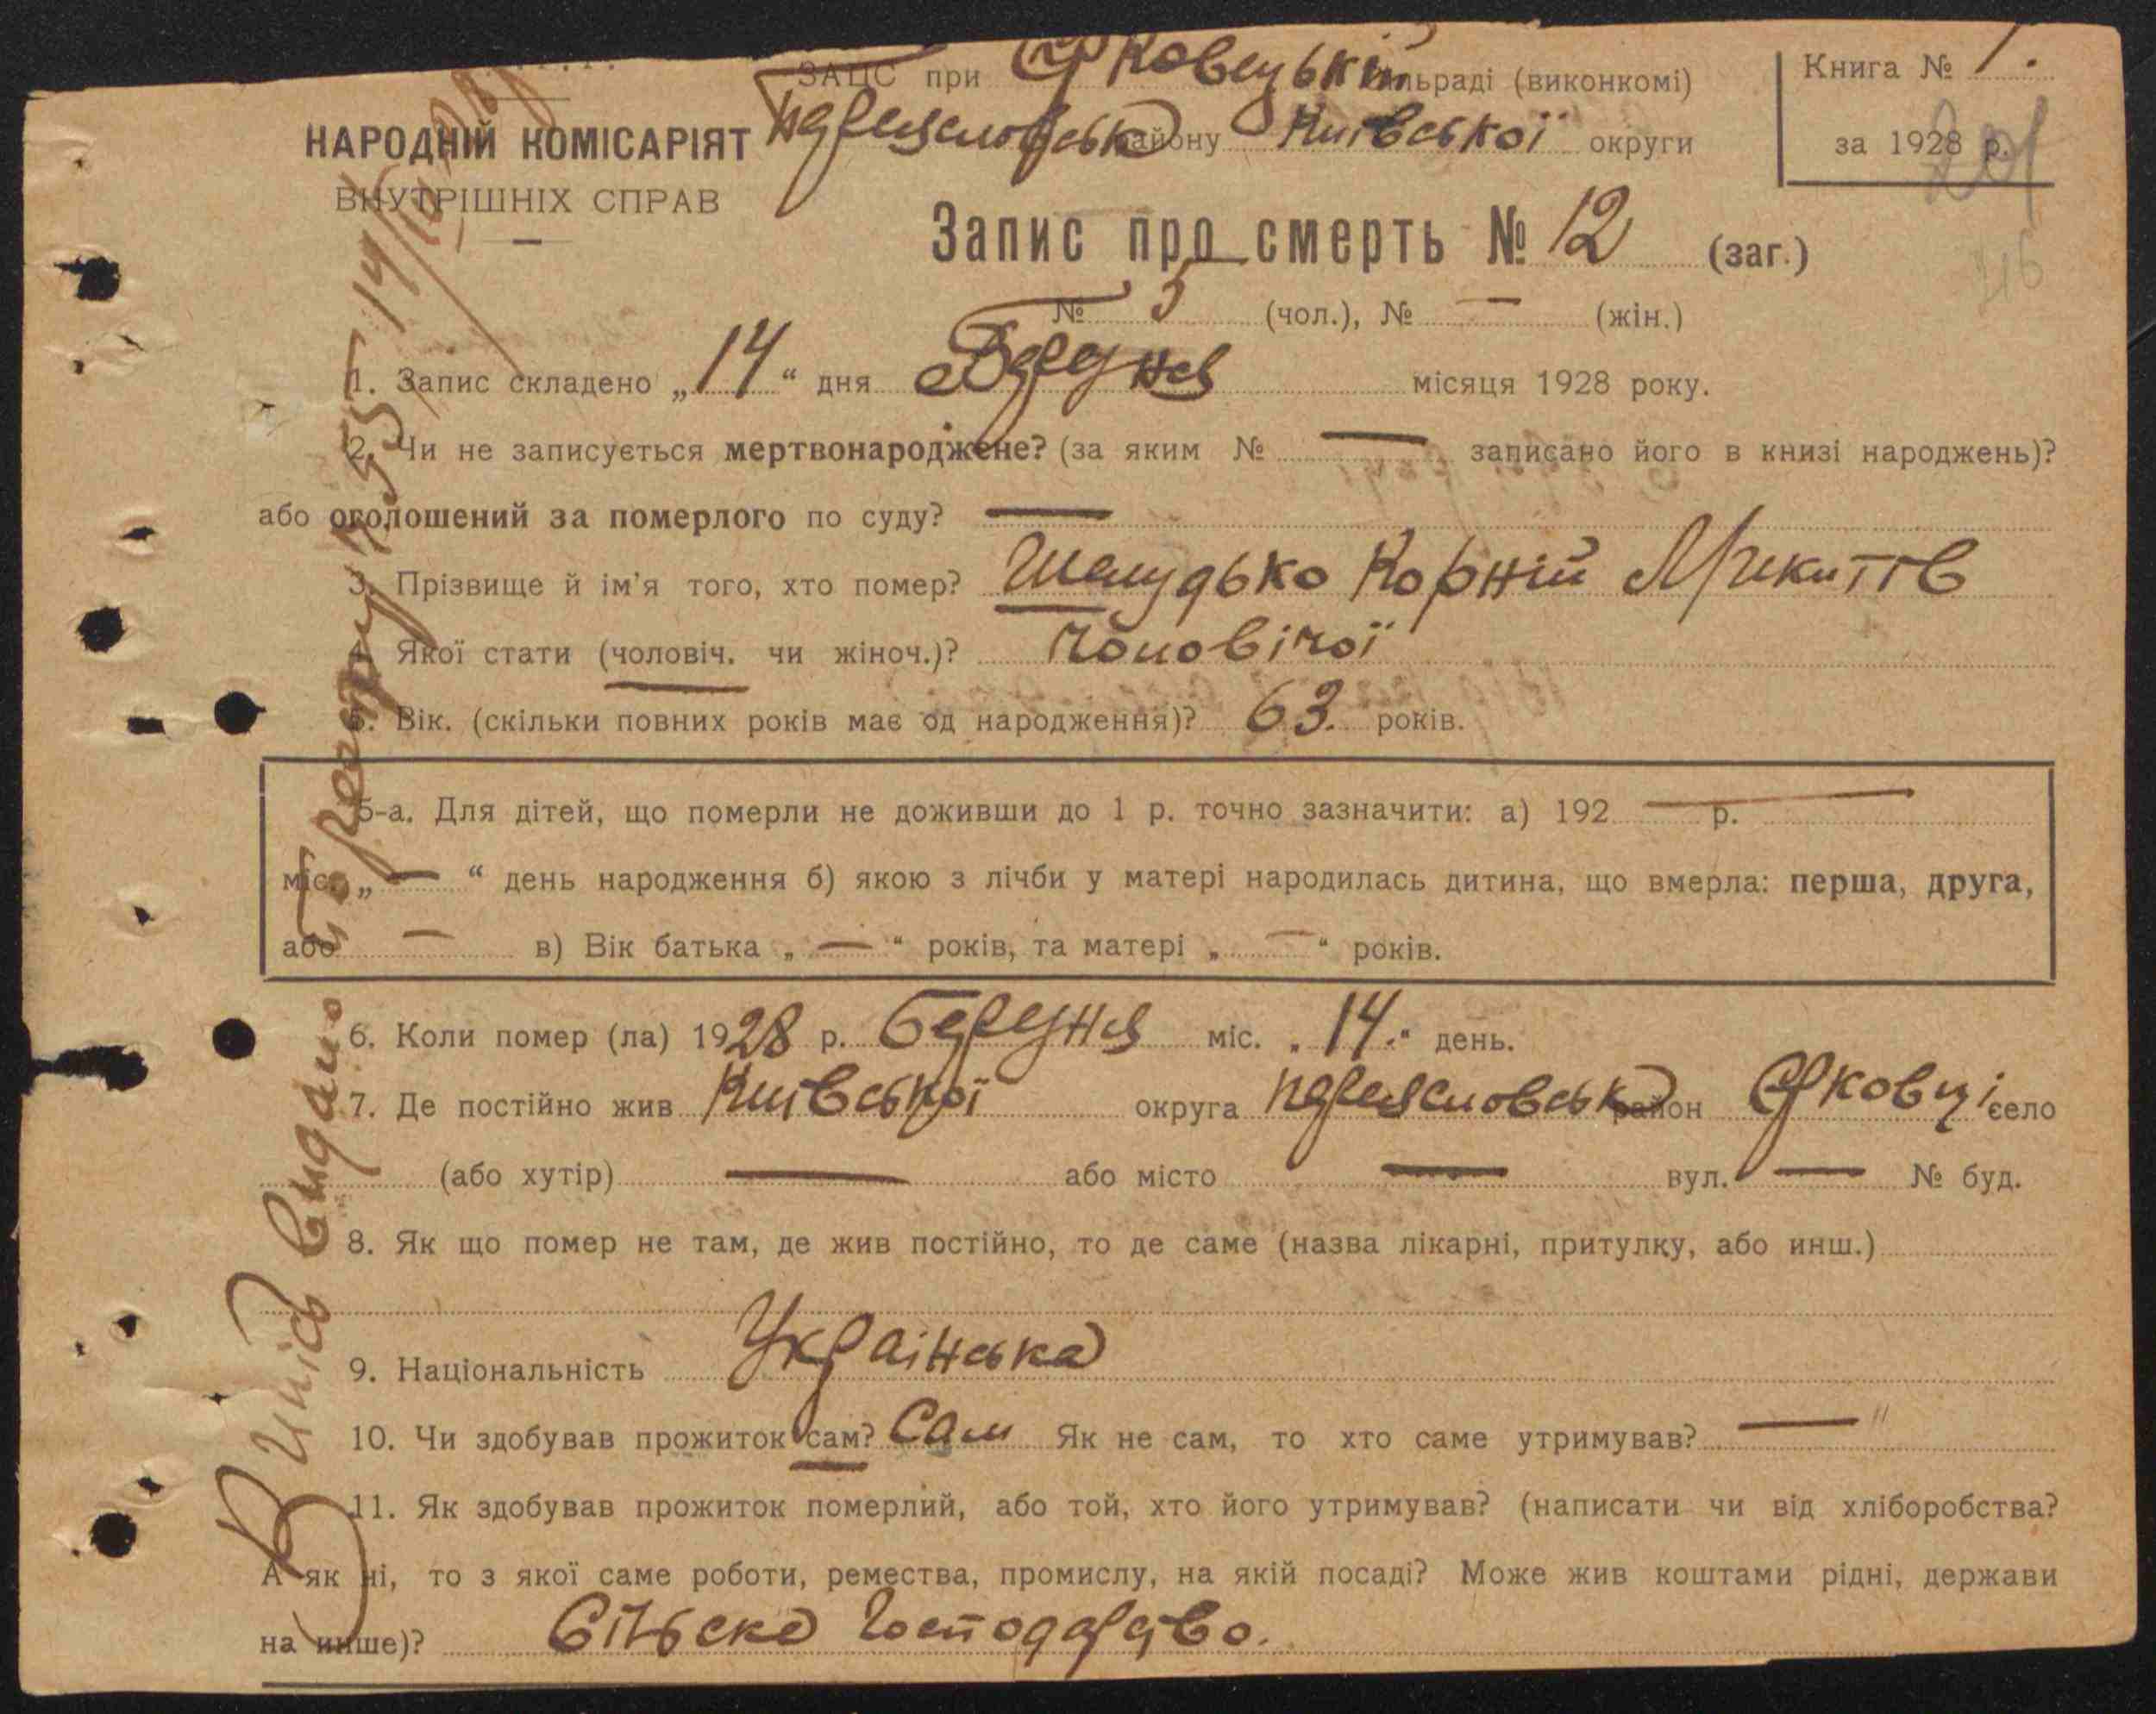 ЗАЦС при Єрковецькій сільраді (виконкомі)
Книга № 1.
НАРОДНІЙ КОМІСАРІЯТ
Переяславськ району Київської округи
за 1928 р.
201
ВНУТРІШНІХ СПРАВ
Запис про смерть № 12 (заг.)
№ 5 (чол.), № — (жін.)
1. Запис складено „14“ дня Березня місяця 1928 року.
2. Чи не записується мертвонароджене? (за яким № — записано його в книзі народжень)?
або оголошений за померлого по суду? —
3. Прізвище й ім'я того, хто помер? Шелудько Корній Микитів
4. Якої стати (чоловіч. чи жіноч.)? Чоловічої
5. Вік. (скільки повних років має од народження)? 63. років.
5-а. Для дітей, що померли не доживши до 1 р. точно зазначити: а) 192 — р. —
міс. „ — “ день народження б) якою з лічби у матері народилась дитина, що вмерла: перша, друга,
або — в) Вік батька „ — “ років, та матері „ — “ років.
6. Коли помер (ла) 1928 р. Березня міс. „14.“ день.
7. Де постійно жив Київської округа Переясловськ район Єрковці село
(або хутір) — або місто — вул. — № буд.
8. Як що помер не там, де жив постійно, то де саме (назва лікарні, притулку, або инш.)
9. Національність Українська
10. Чи здобував прожиток сам? Сам Як не сам, то хто саме утримував? — "
11. Як здобував прожиток померлий, або той, хто його утримував? (написати чи від хліборобства?
А як ні, то з якої саме роботи, ремества, промислу, на якій посаді? Може жив коштами рідні, держави
на инше)? Сільске Господарство.
Витяг видано по реєстру